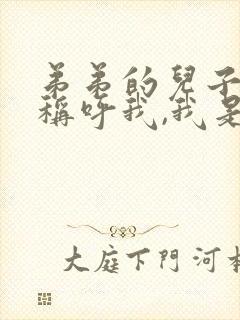 弟弟的兒子
稱呼我,我是
大庭下門河